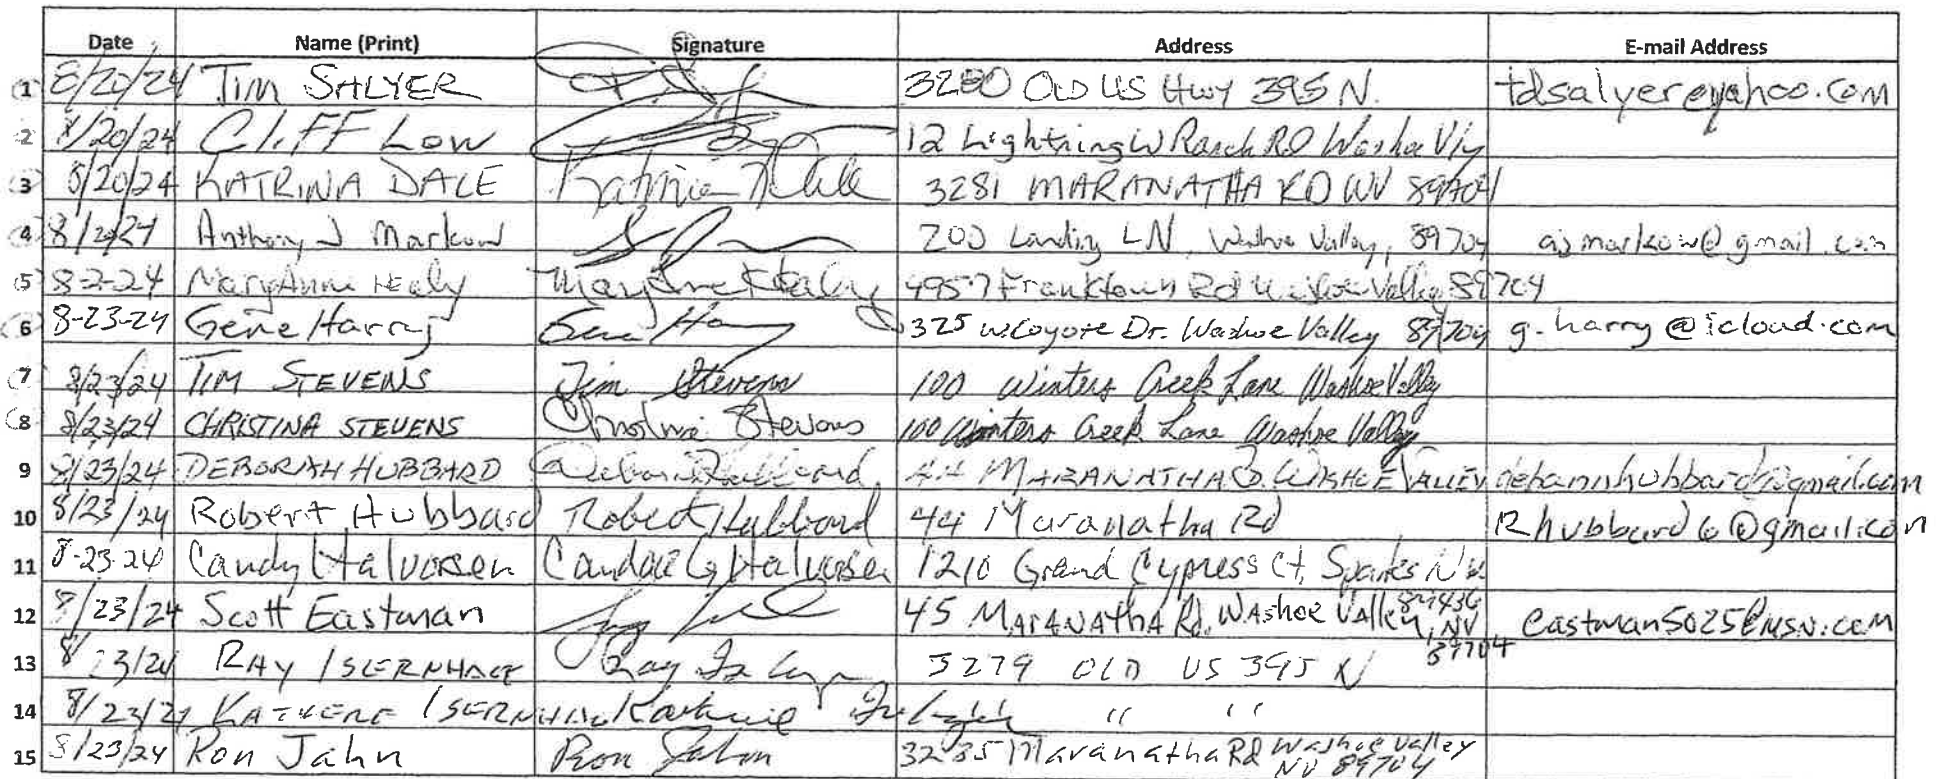 Date Name (Print) Signature Address E-mail Address
1 8/20/24 TIM SALYER 3280 OLD US Hwy 395 N. tdsalyer@yahoo.com
2 8/20/24 CLIFF LOW 12 Lightning W Ranch RD Washoe Vly
3 8/20/24 KATRINA DALE Katrina Dale 3281 MARANATHA RD WV 89704
4 8/20/24 Anthony J Markow 200 Landing LN, Washoe Valley, 89704 ajmarkow@gmail.com
5 8-2-24 MaryAnne Healy MaryAnne Healy 4957 Franktown Rd Washoe Valley 89704
6 8-23-24 Gene Harry Gene Harry 325 W. Coyote Dr. Washoe Valley 89704 g-harry@icloud.com
7 8/23/24 TIM STEVENS Tim Stevens 100 Winters Creek Lane Washoe Valley
8 8/23/24 CHRISTINA STEVENS Christina Stevens 100 Winters Creek Lane Washoe Valley
9 8/23/24 DEBORAH HUBBARD Deborah Hubbard 44 MARANATHA WASHOE VALLEY debannhubbard@gmail.com
10 8/23/24 Robert Hubbard Robert Hubbard 44 Maranatha Rd Rhubbard6@gmail.con
11 8-23-24 Candy Halvorsen Candace G Halvorsen 1210 Grand Cypress Ct, Sparks NV
89436
12 8/23/24 Scott Eastman 45 MARANATHA Rd. WAShoe Valley, NV eastman5025@msn.com
89704
13 8/23/24 RAY ISERNHAGE Ray 3279 OLD US 395 N
14 8/23/24 ISERNHAGE " "
15 8/23/24 Ron Jahn Ron Jahn 3235 Maranatha Rd Washoe Valley
NV 89704